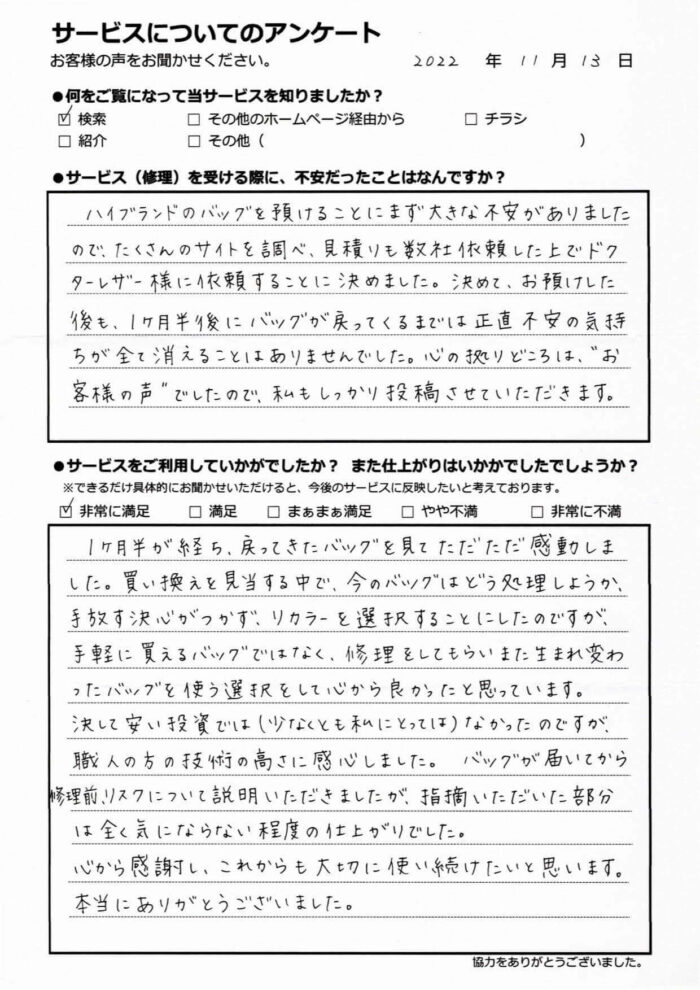 サービスについてのアンケート
お客様の声をお聞かせください。 2022 年 11 月 13 日
●何をご覧になって当サービスを知りましたか？
☑ 検索 □ その他のホームページ経由から □ チラシ
□ 紹介 □ その他（ ）
●サービス（修理）を受ける際に、不安だったことはなんですか？
ハイブランドのバッグを預けることにまず大きな不安がありました
ので、たくさんのサイトを調べ、見積りも数社依頼した上でドク
ターレザー様に依頼することに決めました。決めて、お預けした
後も、1ヶ月半後にバッグが戻ってくるまでは正直不安の気持
ちが全て消えることはありませんでした。心の拠りどころは、"お
客様の声"でしたので、私もしっかり投稿させていただきます。
●サービスをご利用していかがでしたか？ また仕上がりはいかかでしたでしょうか？
※できるだけ具体的にお聞かせいただけると、今後のサービスに反映したいと考えております。
☑ 非常に満足 □ 満足 □ まぁまぁ満足 □ やや不満 □ 非常に不満
1ヶ月半が経ち、戻ってきたバッグを見てただただ感動しま
した。買い換えを見当する中で、今のバッグはどう処理しようか、
手放す決心がつかず、リカラーを選択することにしたのですが、
手軽に買えるバッグではなく、修理をしてもらいまた生まれ変わ
ったバッグを使う選択をして心から良かったと思っています。
決して安い投資では（少なくとも私にとっては）なかったのですが、
職人の方の技術の高さに感心しました。 バッグが届いてから
修理前、リスクについて説明いただきましたが、指摘いただいた部分
は全く気にならない程度の仕上がりでした。
心から感謝し、これからも大切に使い続けたいと思います。
本当にありがとうございました。
協力をありがとうございました。